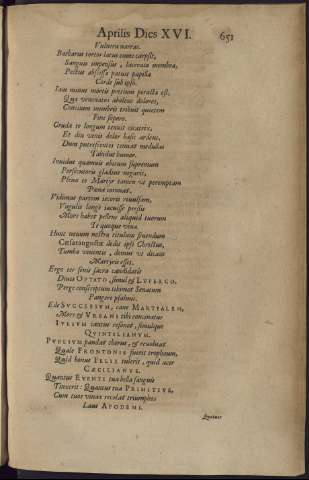 Aprilis Dies XVI.
651
Vulnera narras.
Barbarus tortor latus omne carpsit,
Sanguis impensus, lacerata membra,
Pectus abscissa patuit papilla
Corde sub ipso.
Iam minus mortis pretium peracta est,
Quæ venenatos abolens dolores,
Concitam membris tribuit quietem
Fine sopero.
Cruda te longum tenuit cicatrix,
Et diu venis dolor hæsit ardens,
Dum putrescentes tenuat medullas
Tabidus humor.
Inuidus quamuis obitum supremum
Persecutoris gladius negarit,
Plena te Martyr tamen vt peremptam
Pœna coronat.
Vidimus partem iecoris reuulsam,
Vngulis longè iacuisse pressis
Mors habet pallens aliquid tuorum
Te quoque viua.
Hunc nouum nostræ titulum fruendum
Cæsaraugustæ dedit ipse Christus,
Iuncta viuentis, domus vt dicata
Martyris esset.
Ergo ter senis sacra candidatis
Diues OPTATO, simul & LUPERCO,
Perge conscriptum tibimet Senatum
Pangere psalmis.
Ede SVCCESSVM, cane MARTIALEM,
Mors & VRBANI tibi concinatur
IVLIVM cantus resonet, simulque
QVINTILIANVM.
PVBLIVM pandat chorus, & reuoluat
Quale FRONTONIS fuerit trophæum,
Quid bonus FELIX tulerit, quid acer
CÆCILIANVS.
Quantus EVENTI tua bella sanguis
Tinxerit: Quantus tua PRIMITIVE,
Cum tuos viuax recolat triumphos
Laus APODEMI.
Quatuor